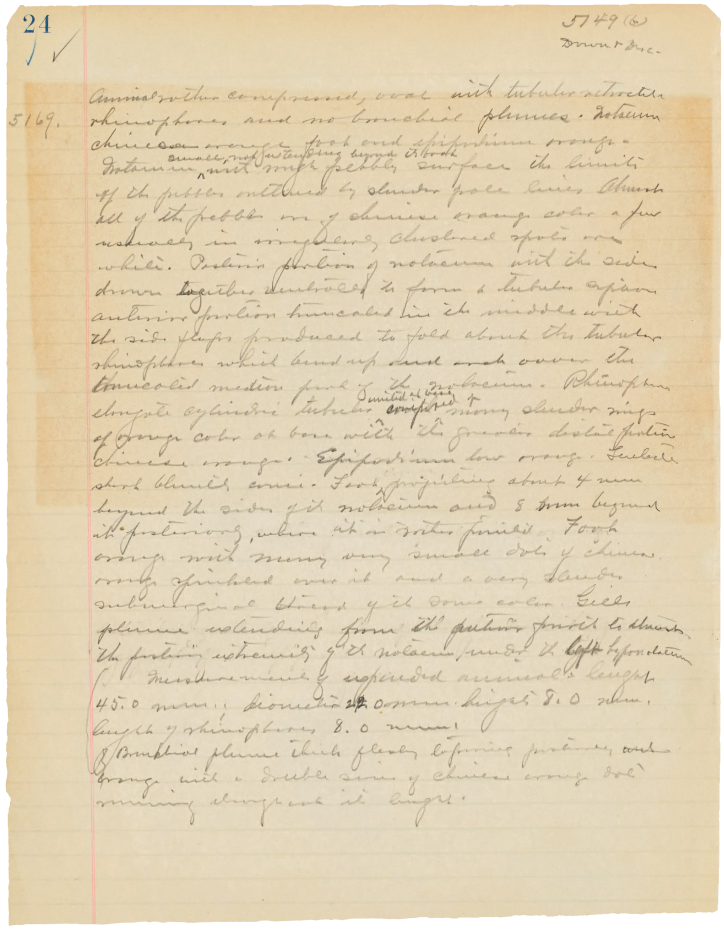 24
5149 (6)
Drawn & Desc.
5169.
Animal rather compressed, oval with tubular retractile
rhinophores and no branchial plumes. Notaeum
chinese orange foot and epipodium orange.
small, not extending beyond the foot
Notaeum with rough pebbly surface the limits
of the pebbles outlined by slender pale lines Almost
all of the pebbles are of chinese orange color a few
usually in irregularly clustered spots are
white. Posterior portion of notaeum with the sides
drawn together ventrally to form a tubular siphon
anterior portion truncated in the middle with
the side flaps produced to fold about the tubular
rhinophores which bend up and over the
truncated median part of the notaeum. Rhinophores
united at base
elongate cylindric tubular composed of many slender rings
of orange color at base with the greater distal portion
chinese orange. Epipodium low orange. Tentacle
short bluntly conic. Foot projecting about 4 mm
beyond the sides of the notaeum and 8 mm beyond
it posteriorly, where it is rather pointed. Foot
orange with many very small dots of chinese
orange sprinkled over it and a very slender
submarginal thread of the same color. Gills
plume extending from the anterior to almost
the posterior extremity of the notaeum, under the left hyponotaeum
Measurements of expanded animal: lenght
45.0 mm.; diameter 22.0 mm. hight 8.0 mm.
lenght of rhinophores 8.0 mm.
Branchial plume thick fleshy tapering posteriorly and
orange with a double series of chinese orange dots
running throughout its lenght.